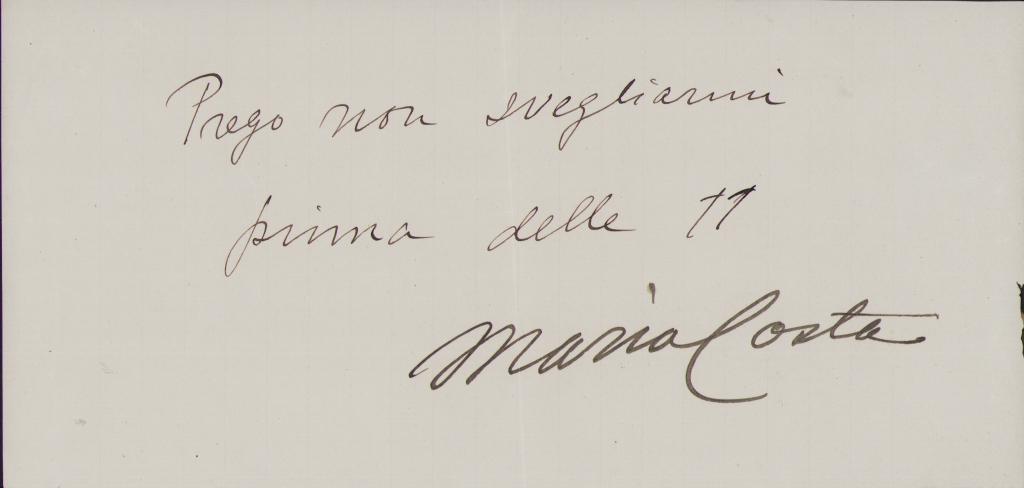 Prego non svegliarmi
prima delle 11
Maria Costa